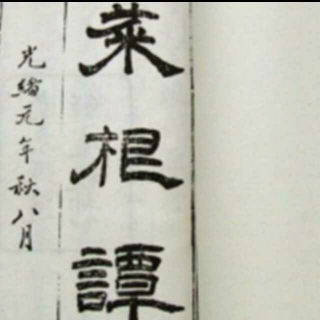 菜根譚
光緒元年秋八月